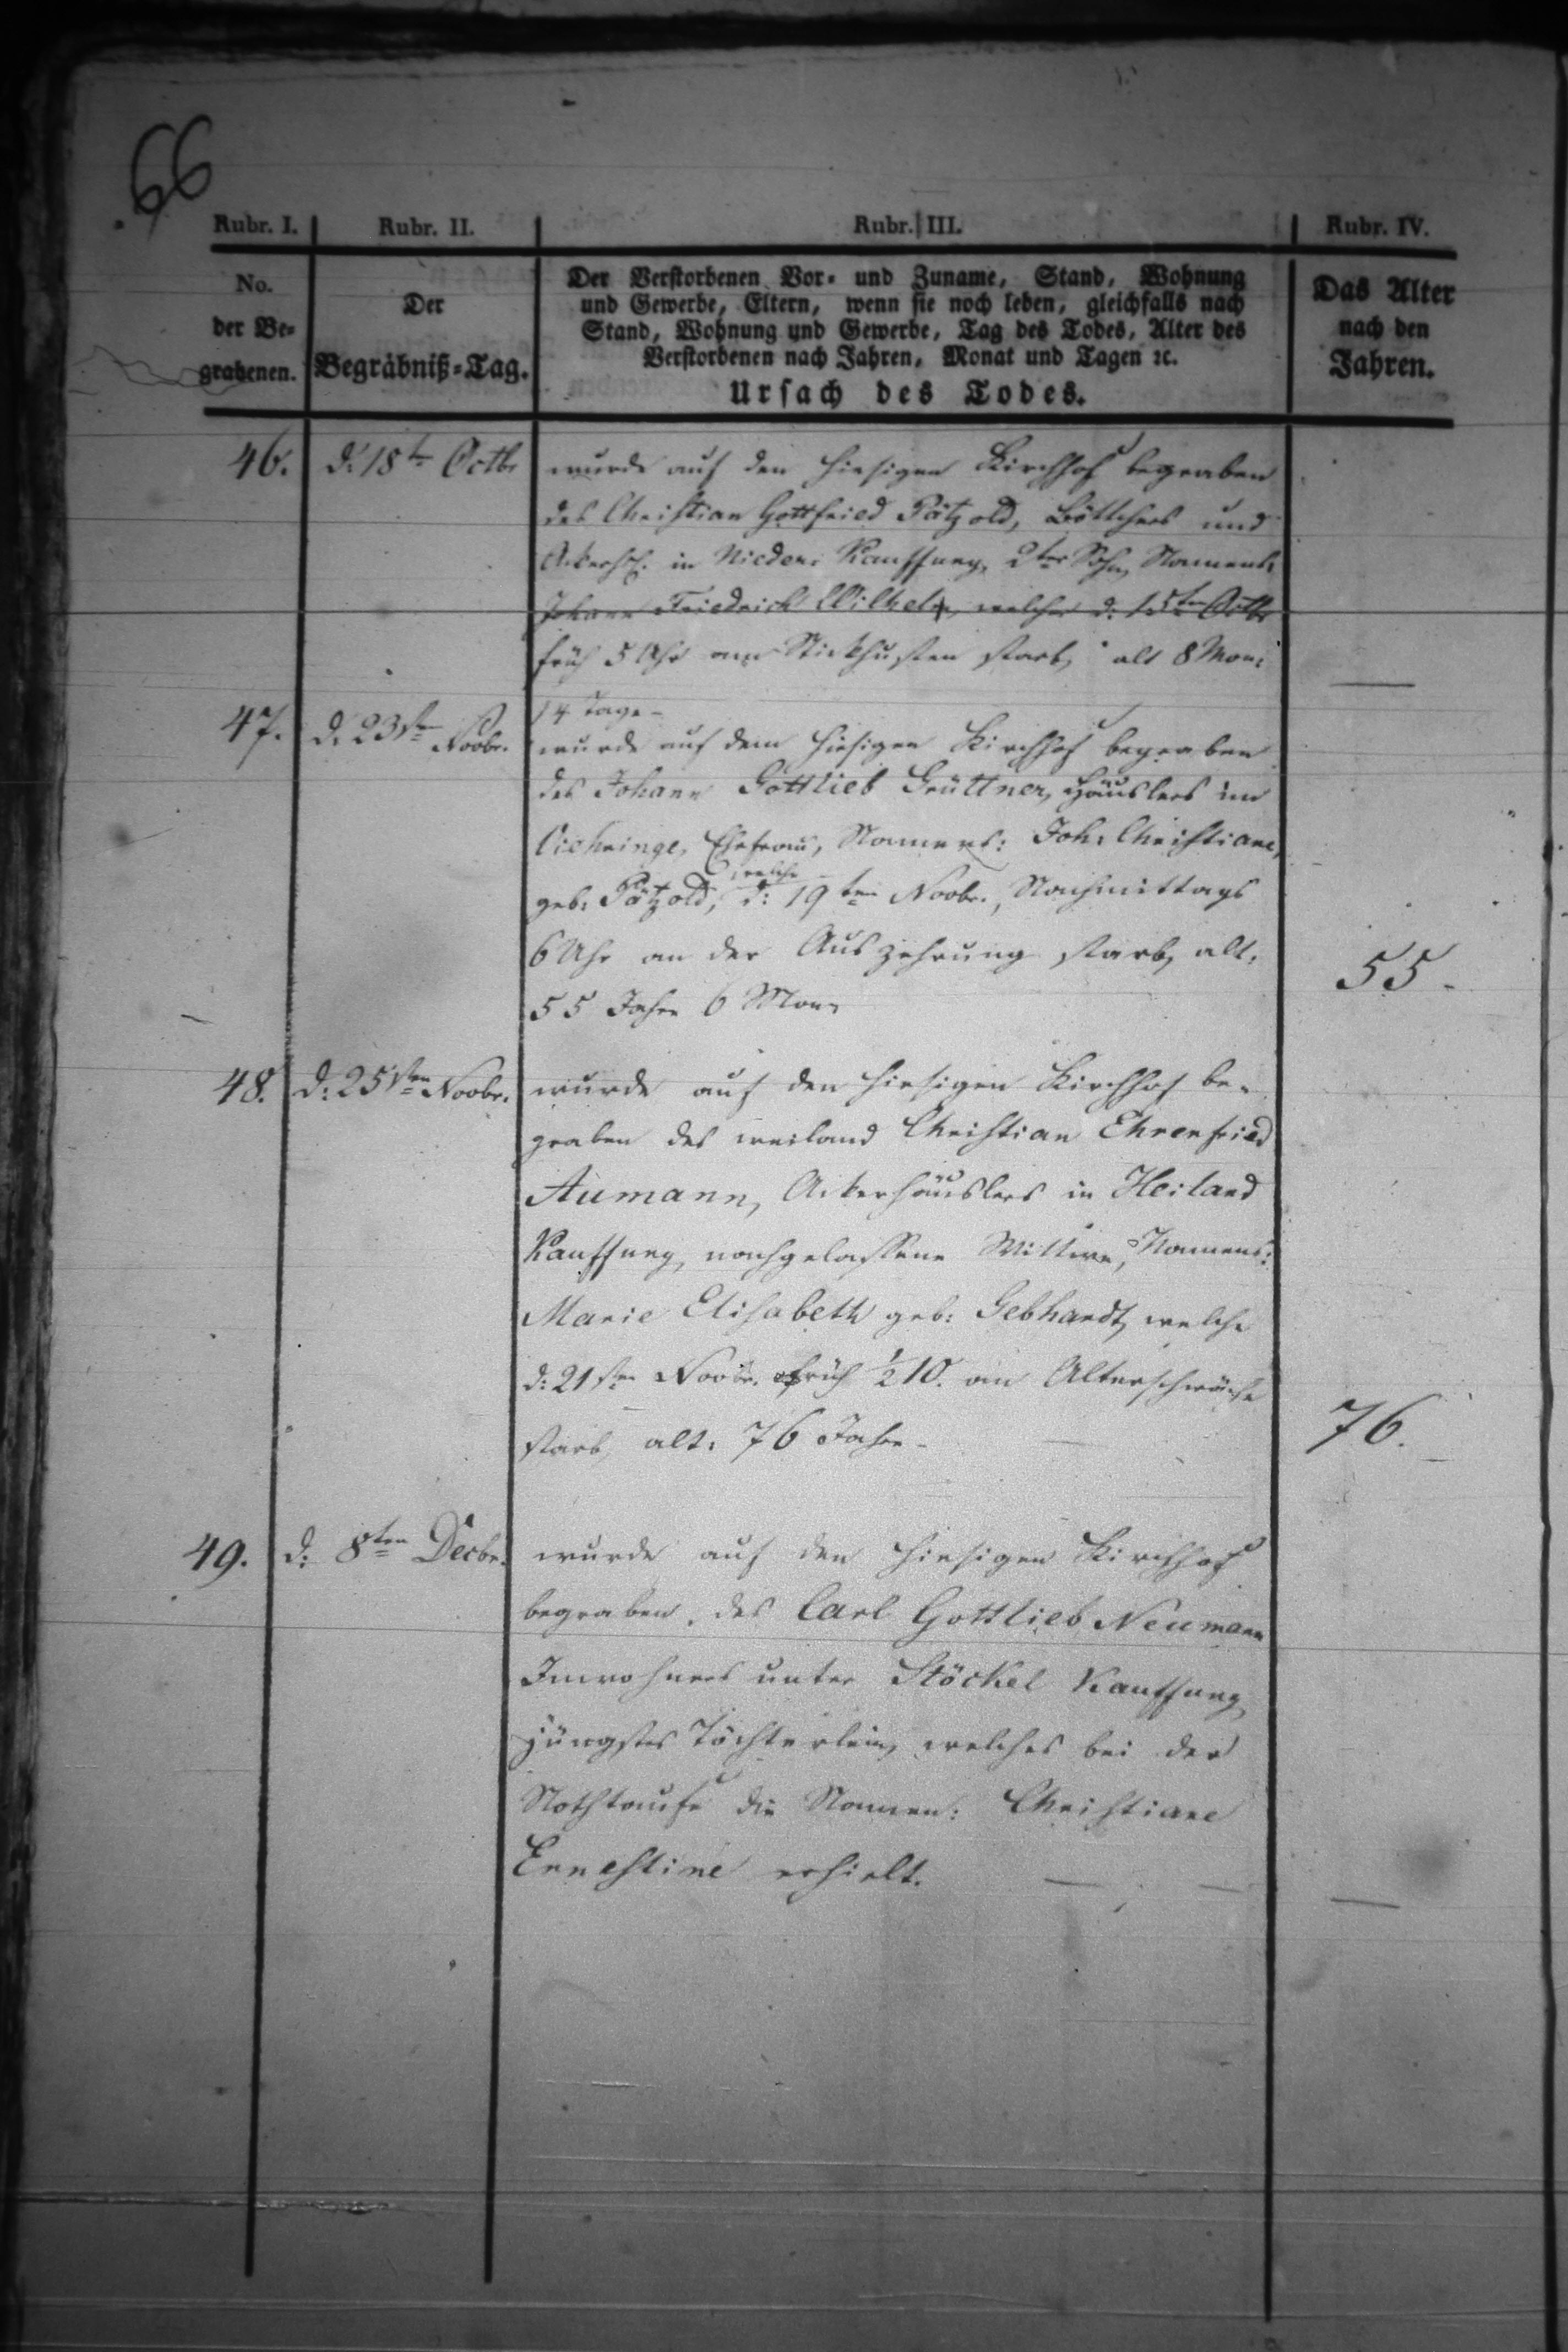 66
Rubr. I. Rubr. II. Rubr. III. Rubr. IV.
No. der Be= grabenen.
Der Begräbniß=Tag.
Der Verstorbenen Vor= und Zuname, Stand, Wohnung
und Gewerbe, Eltern, wenn sie noch leben, gleichfalls nach
Stand, Wohnung und Gewerbe, Tag des Todes, Alter des
Verstorbenen nach Jahren, Monat und Tagen ꝛc.
Ursach des Todes.
Das Alter nach den Jahren.
46. d: 18t Octbr wurde auf den hiesigen Kirchhof begraben
des Christian Gottfried Pätzold, Böttchers und
Ackerhsl. in Nieder: Kauffung, 2ter Sohn, Namens:
Johann Friedrich Wilhelm, welcher d: 15ten Octbr
früh 5 Uhr am Stickhusten starb, alt 8 Mon:
14 Tage –
47. d. 23st Novbr. wurde auf dem hiesigen Kirchhof begraben
des Johann Gottlieb Grüttner, Häuslers im
Ehefrau, Namens: Joh. Christiane,
geb: Pätzold, welche d: 19ten Novbr., Nachmittags
6 Uhr an der Auszehrung starb, alt.
55 Jahre 6 Mon: 55.
48. d: 25sten Novbr. wurde auf den hiesigen Kirchhof be-
graben des weiland Christian Ehrenfried
Aumann, Ackerhäuslers in Heiland
Kauffung, nachgelassene Wittwe, Namens:
Marie Elisabeth geb: Gebhardt, welche
d: 21sten Novbr. früh ½ 10. an Alterschwäche
starb alt. 76 Jahre – 76.
49. d: 8ten Decbr. wurde auf den hiesigen Kirchhof
begraben, des Carl Gottlieb Neumann
Inwohners unter Stöckel Kauffung,
jüngstes Töchterlein, welches bei der
Nothtaufe die Namen: Christiane
Ernestine erhielt.